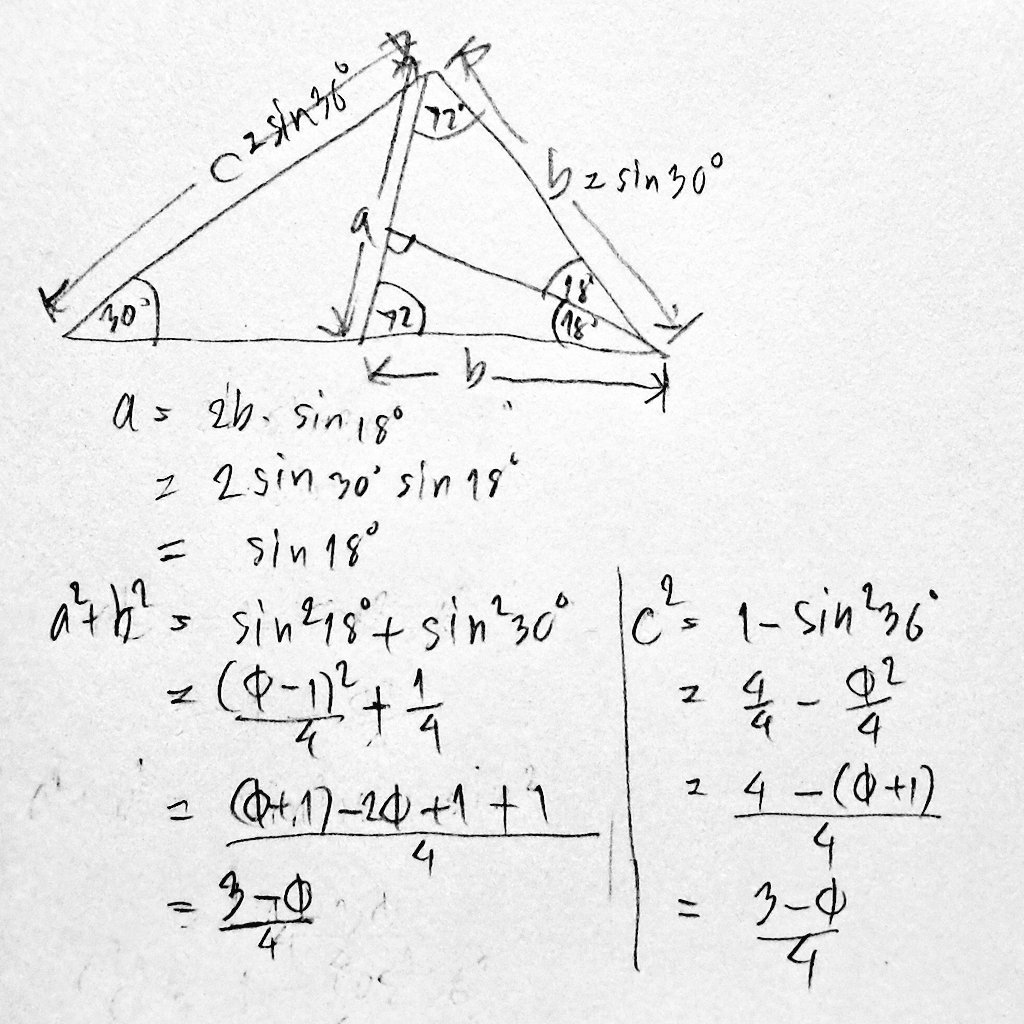 c = sin 36°
72°
b = sin 30°
a
30°
72
18°
18°
b
a = 2b. sin 18°
= 2 sin 30° sin 18°
= sin 18°
a² + b² = sin² 18° + sin² 30°
= (Φ-1)²/4 + 1/4
= ((Φ+1)-2Φ+1+1)/4
= (3-Φ)/4
c² = 1 - sin² 36°
= 4/4 - Φ²/4
= (4-(Φ+1))/4
= (3-Φ)/4